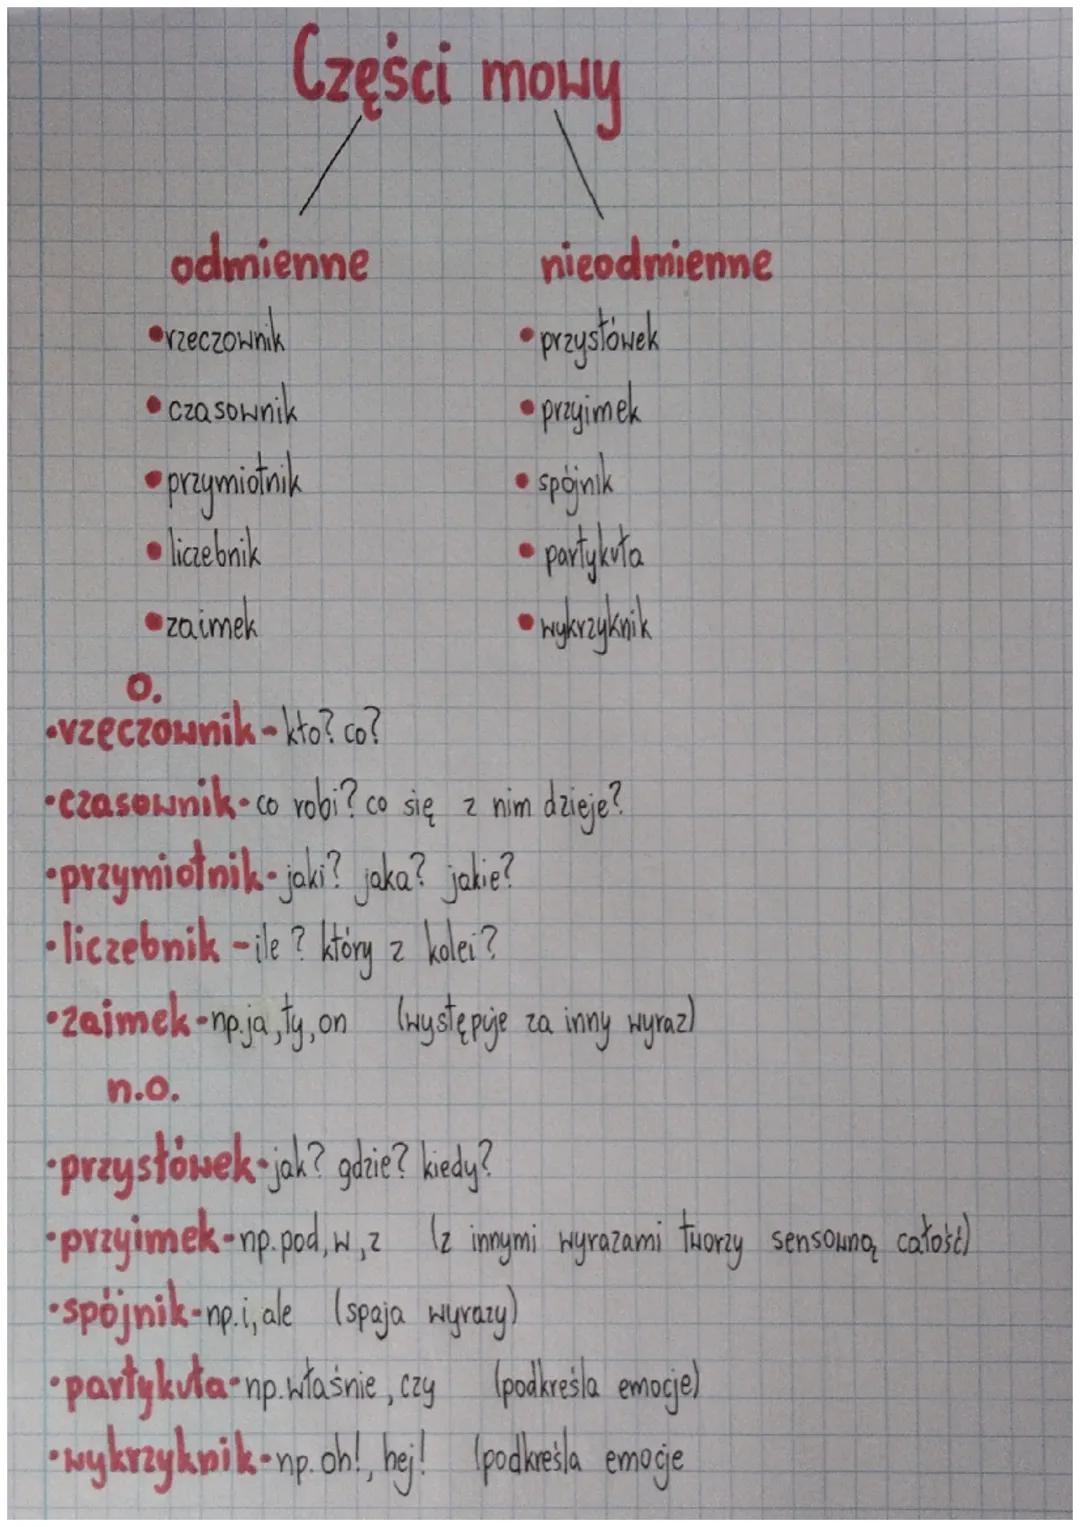 Części mowy
odmienne
nieodmienne
•rzeczownik
•przysłówek
•czasownik
•przyimek
•przymiotnik
•spójnik
•liczebnik
•partykuła
•zaimek
•wykrzyknik
o.
•rzeczownik-kto? co?
•czasownik-co robi? co się z nim dzieje?
•przymiotnik-jaki? jaka? jakie?
•liczebnik-ile? który z kolei?
•zaimek-np.ja,ty,on (występuje za inny wyraz)
n.o.
•przysłówek-jak? gdzie? kiedy?
•przyimek-np.pod,w,z (z innymi wyrazami tworzy sensowną całość)
•spójnik-np.i,ale (spaja wyrazy)
•partykuła-np.właśnie,czy (podkreśla emocje)
•wykrzyknik-np.oh!,hej! (podkreśla emocje